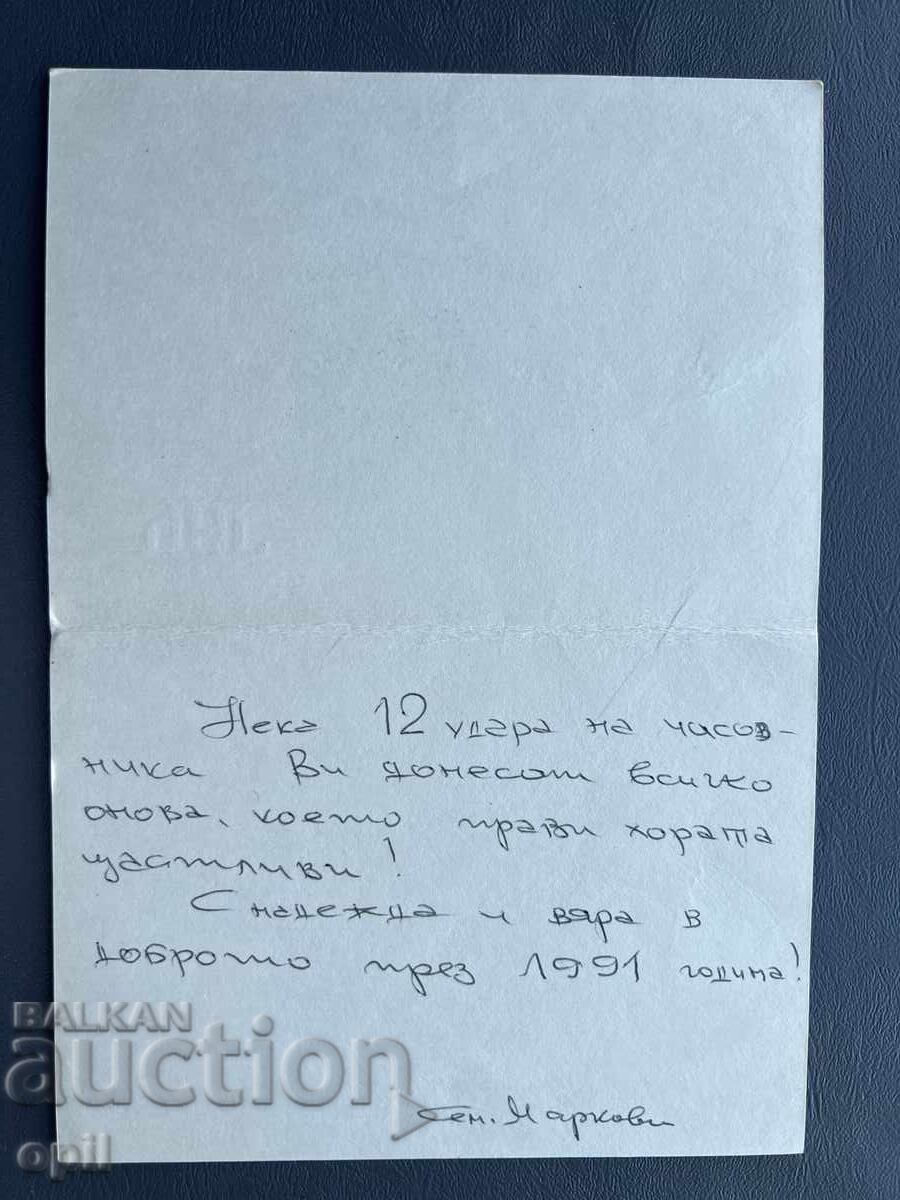 Нека 12 удара на часов-
ника Ви донесат всичко
онова, което прави хората
щастливи!
С надежда и вяра в
доброто през 1991 година!
Сем. Маркови
BALKAN
auction
opil